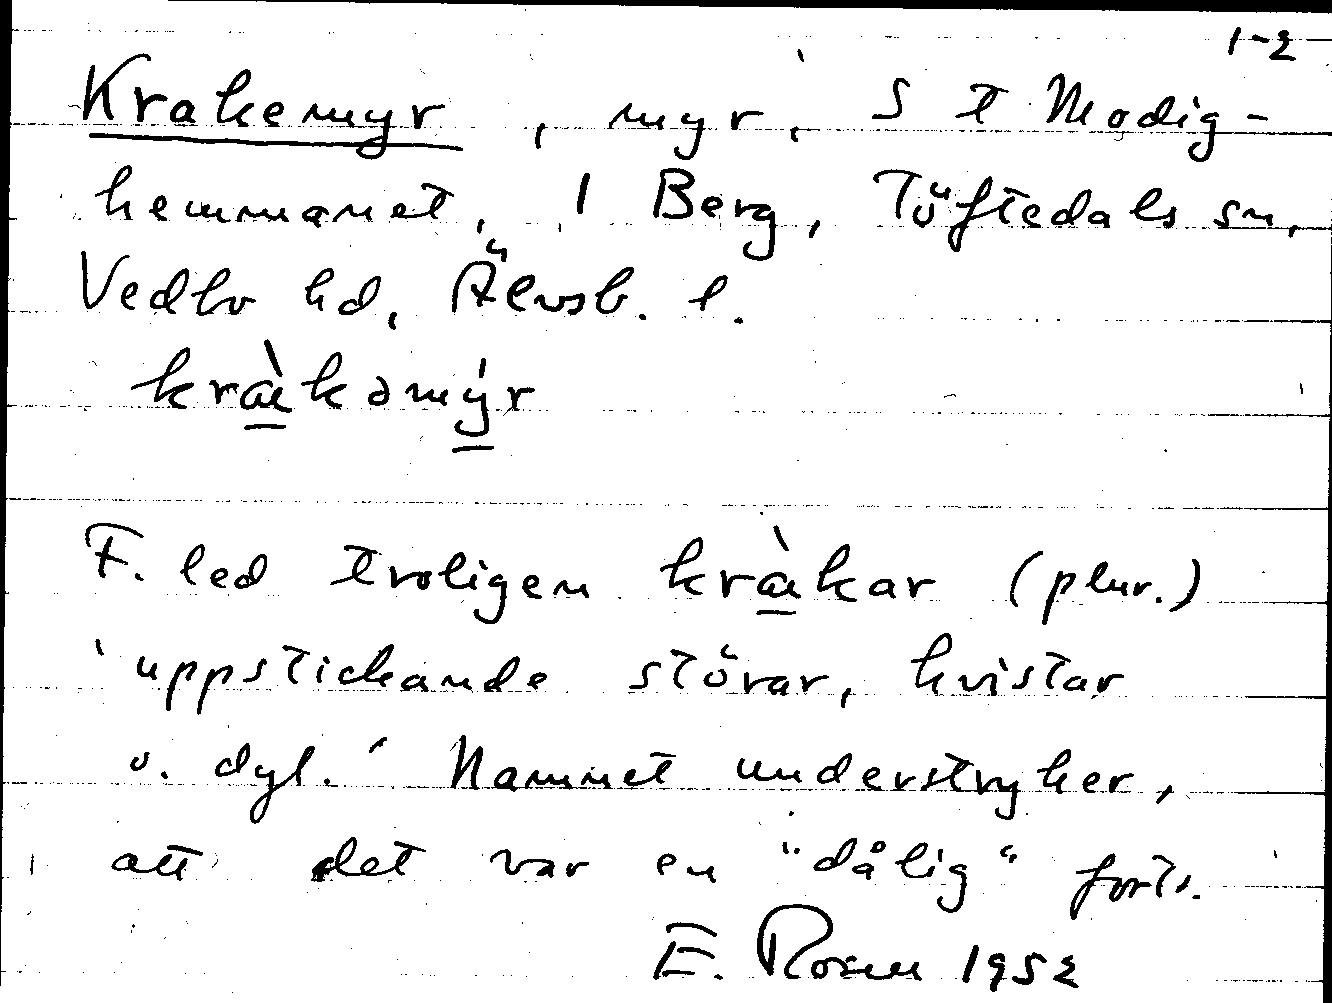 1-2
Krakemyr, myr, S t Modig-
hemmanet, 1 Berg, Töftedals sn,
Vedbo hd, Älvsb. l.
kràkəmýr
F. led troligen kràkar (plur.)
'uppstickande störar, kvistar
o. dyl.' Namnet understryker,
att det var en "dålig" forts.
E. Rosen 1952